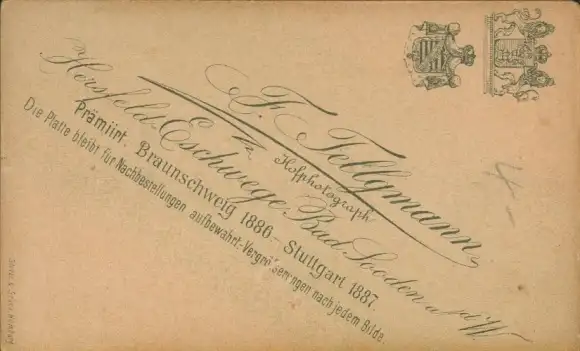 F. Tellgmann
Hofphotograph
Hersfeld-Eschwege, Bad Sooden a/W
Prämiirt. Braunschweig 1886.- Stuttgart 1887.
Die Platte bleibt für Nachbestellungen aufbewahrt.-Vergrößerungen nach jedem Bilde.
4-